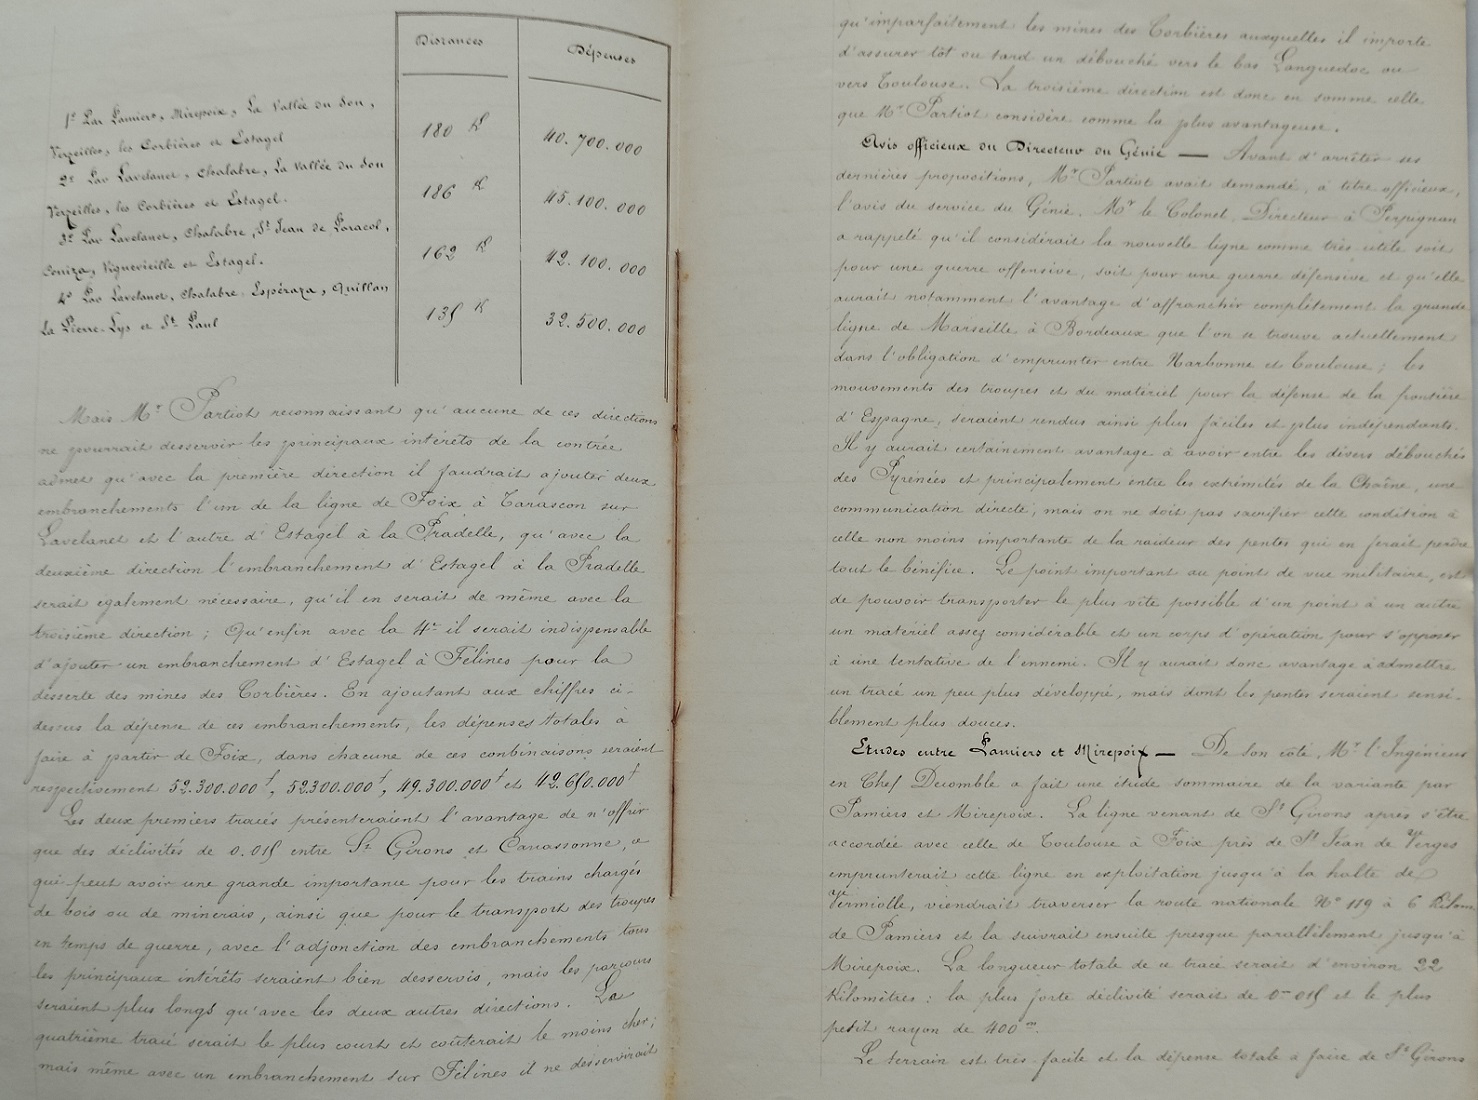 Distances
Dépenses
1º Par Pamiers, Mirepoix, La Vallée du Sou,
Verzeilles, les Corbières et Estagel
180 K
40.700.000
2º Par Lavelanet, Chalabre, La Vallée du Sou
Verzeilles, les Corbières et Estagel.
186 K
45.100.000
3º Par Lavelanet, Chalabre, St Jean de Paracol,
Couiza, Vignevieille et Estagel.
162 K
42.100.000
4º Par Lavelanet, Chalabre, Espéraza, Quillan
La Pierre-Lys et St Paul
135 K
32.500.000
Mais Mr Partiot reconnaissant qu'aucune de ces directions
ne pourrait desservir les principaux intérêts de la contrée
admet qu'avec la première direction il faudrait ajouter deux
embranchements l'un de la ligne de Foix à Tarascon sur
Lavelanet et l'autre d'Estagel à la Pradelle, qu'avec la
deuxième direction l'embranchement d'Estagel à la Pradelle
serait egalement nécessaire, qu'il en serait de même avec la
troisième direction ; Qu'enfin avec la 4e il serait indispensable
d'ajouter un embranchement d'Estagel à Félines pour la
desserte des mines des Corbières. En ajoutant aux chiffres ci-
dessus la dépense de ces embranchements, les dépenses totales à
faire à partir de Foix, dans chacune de ces conbinaisons seraient
respectivement 52.300.000f, 52.300.000f, 49.300.000f et 42.650.000f
Les deux premiers tracés présenteraient l'avantage de n'offrir
que des déclivités de 0.015 entre St Girons et Carcassonne, ce
qui peut avoir une grande importance pour les trains chargés
de bois ou de minerais, ainsi que pour le transport des troupes
en temps de guerre, avec l'adjonction des embranchements tous
les principaux intérêts seraient bien desservis, mais les parcours
seraient plus longs qu'avec les deux autres directions. La
quatrième tracé serait le plus court et coûterait le moins cher ;
mais même avec un embranchement sur Félines il ne desservirait
qu'imparfaitement les mines des Corbières auxquelles il importe
d'assurer tôt ou tard un débouché vers le bas Languedoc ou
vers Toulouse. La troisième direction est donc en somme celle
que Mr Partiot considère comme la plus avantageuse.
Avis officieux du Directeur du Génie — Avant d'arrêter ses
dernières propositions, Mr Partiot avait demandé, à titre officieux,
l'avis du service du Génie. Mr le Colonel Directeur à Perpignan
a rappelé qu'il considérait la nouvelle ligne comme très utile soit
pour une guerre offensive, soit pour une guerre défensive et qu'elle
aurait notamment l'avantage d'affranchir complètement la grande
ligne de Marseille à Bordeaux que l'on se trouve actuellement
dans l'obligation d'emprunter entre Narbonne et Toulouse ; les
mouvements des troupes et du matériel pour la défense de la frontière
d'Espagne, seraient rendus ainsi plus faciles et plus indépendants.
Il y aurait certainement avantage à avoir entre les divers débouchés
des Pyrénées et principalement entre les extrémités de la Chaîne, une
communication directe, mais on ne doit pas sacrifier cette condition à
celle non moins importante de la raideur des pentes qui en ferait perdre
tout le bénéfice. Le point important au point de vue militaire, est
de pouvoir transporter le plus vite possible d'un point à un autre
un matériel assez considérable et un corps d'opération pour s'opposer
à une tentative de l'ennemi. Il y aurait donc avantage à admettre
un tracé un peu plus développé, mais dont les pentes seraient sensi-
blement plus douces.
Etudes entre Pamiers et Mirepoix — De son côté, Mr l'Ingénieur
en Chef Decomble a fait une étude sommaire de la variante par
Pamiers et Mirepoix. La ligne venant de St Girons après s'être
accordée avec celle de Toulouse à Foix près de St Jean de Verges
emprunterait cette ligne en exploitation jusqu'à la halte de
Vermiolle, viendrait traverser la route nationale Nº 119 à 6 Kilom
de Pamiers et la suivrait ensuite presque parallèlement jusqu'à
Mirepoix. La longueur totale de ce tracé serait d'environ 22
Kilomètres : la plus forte déclivité serait de 0m015 et le plus
petit rayon de 400m.
Le terrain est très facile et la dépense totale à faire de St Girons